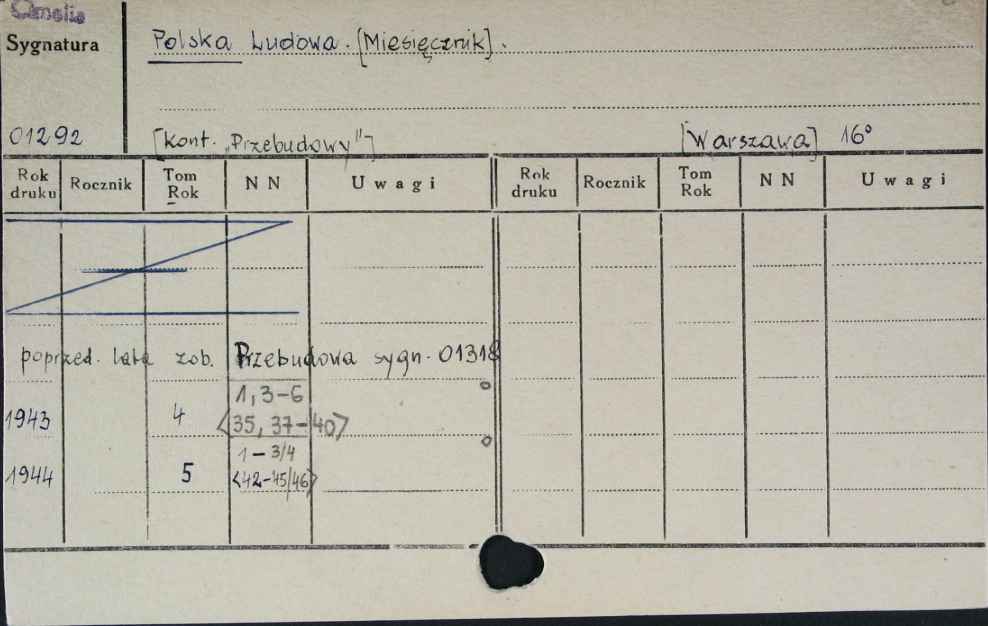 Omelia
Sygnatura
Polska Ludowa. [Miesięcznik].
01292
[Kont. „Przebudowy"]
[Warszawa] 16°
Rok druku Rocznik Tom Rok NN Uwagi Rok druku Rocznik Tom Rok NN Uwagi
poprzed. lata zob. Przebudowa sygn. 01318
1943 4 1, 3-6
<35, 37-40>
1944 5 1-3/4
<42-45/46>